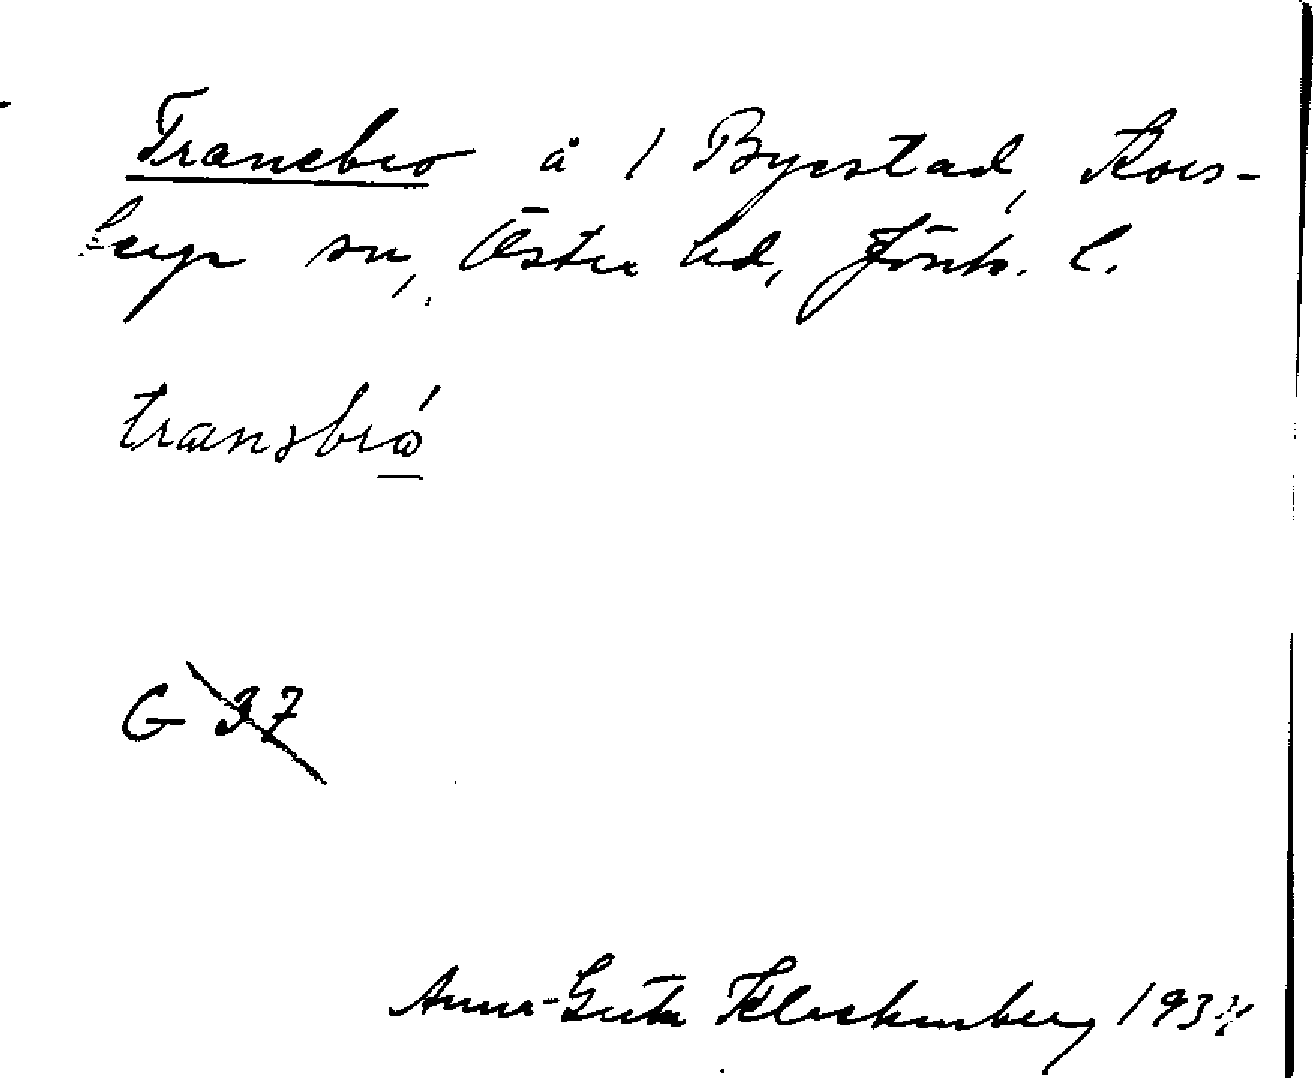 Tranebro å 1 Byestad, Kors-
berga sn, Östra hd, Jönk. l.
tranəbrɷ́
G 37
Anna-Greta Klockenberg 1934